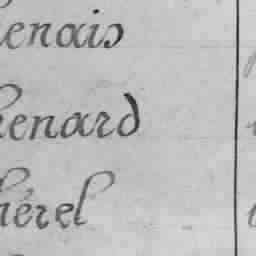 henais
henard
hérel